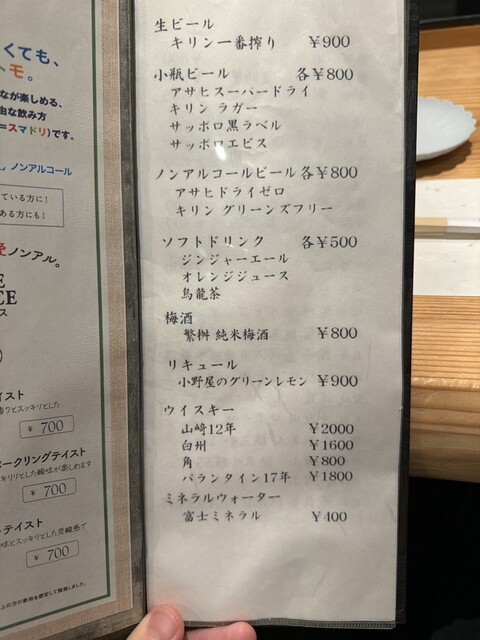 くても、
トモ。
なが楽しめる、
由な飲み方
=スマドリ)です。
ノンアルコール
ている方に!
ある方にも!
ノンアル。
E
CE
ス
イスト
とスッキリとした
¥ 700
ークリングテイスト
キリとした酸味が楽しめます
¥ 700
テイスト
味とスッキリした炭酸感で
¥ 700
上の方の飲用を想定して開発しました。
生ビール
キリン一番搾り ¥900
小瓶ビール 各¥800
アサヒスーパードライ
キリン ラガー
サッポロ黒ラベル
サッポロエビス
ノンアルコールビール各¥800
アサヒドライゼロ
キリン グリーンズフリー
ソフトドリンク 各¥500
ジンジャーエール
オレンジジュース
烏龍茶
梅酒
繁桝 純米梅酒 ¥800
リキュール
小野屋のグリーンレモン ¥900
ウイスキー
山崎12年 ¥2000
白州 ¥1600
角 ¥800
バランタイン17年 ¥1800
ミネラルウォーター
富士ミネラル ¥400